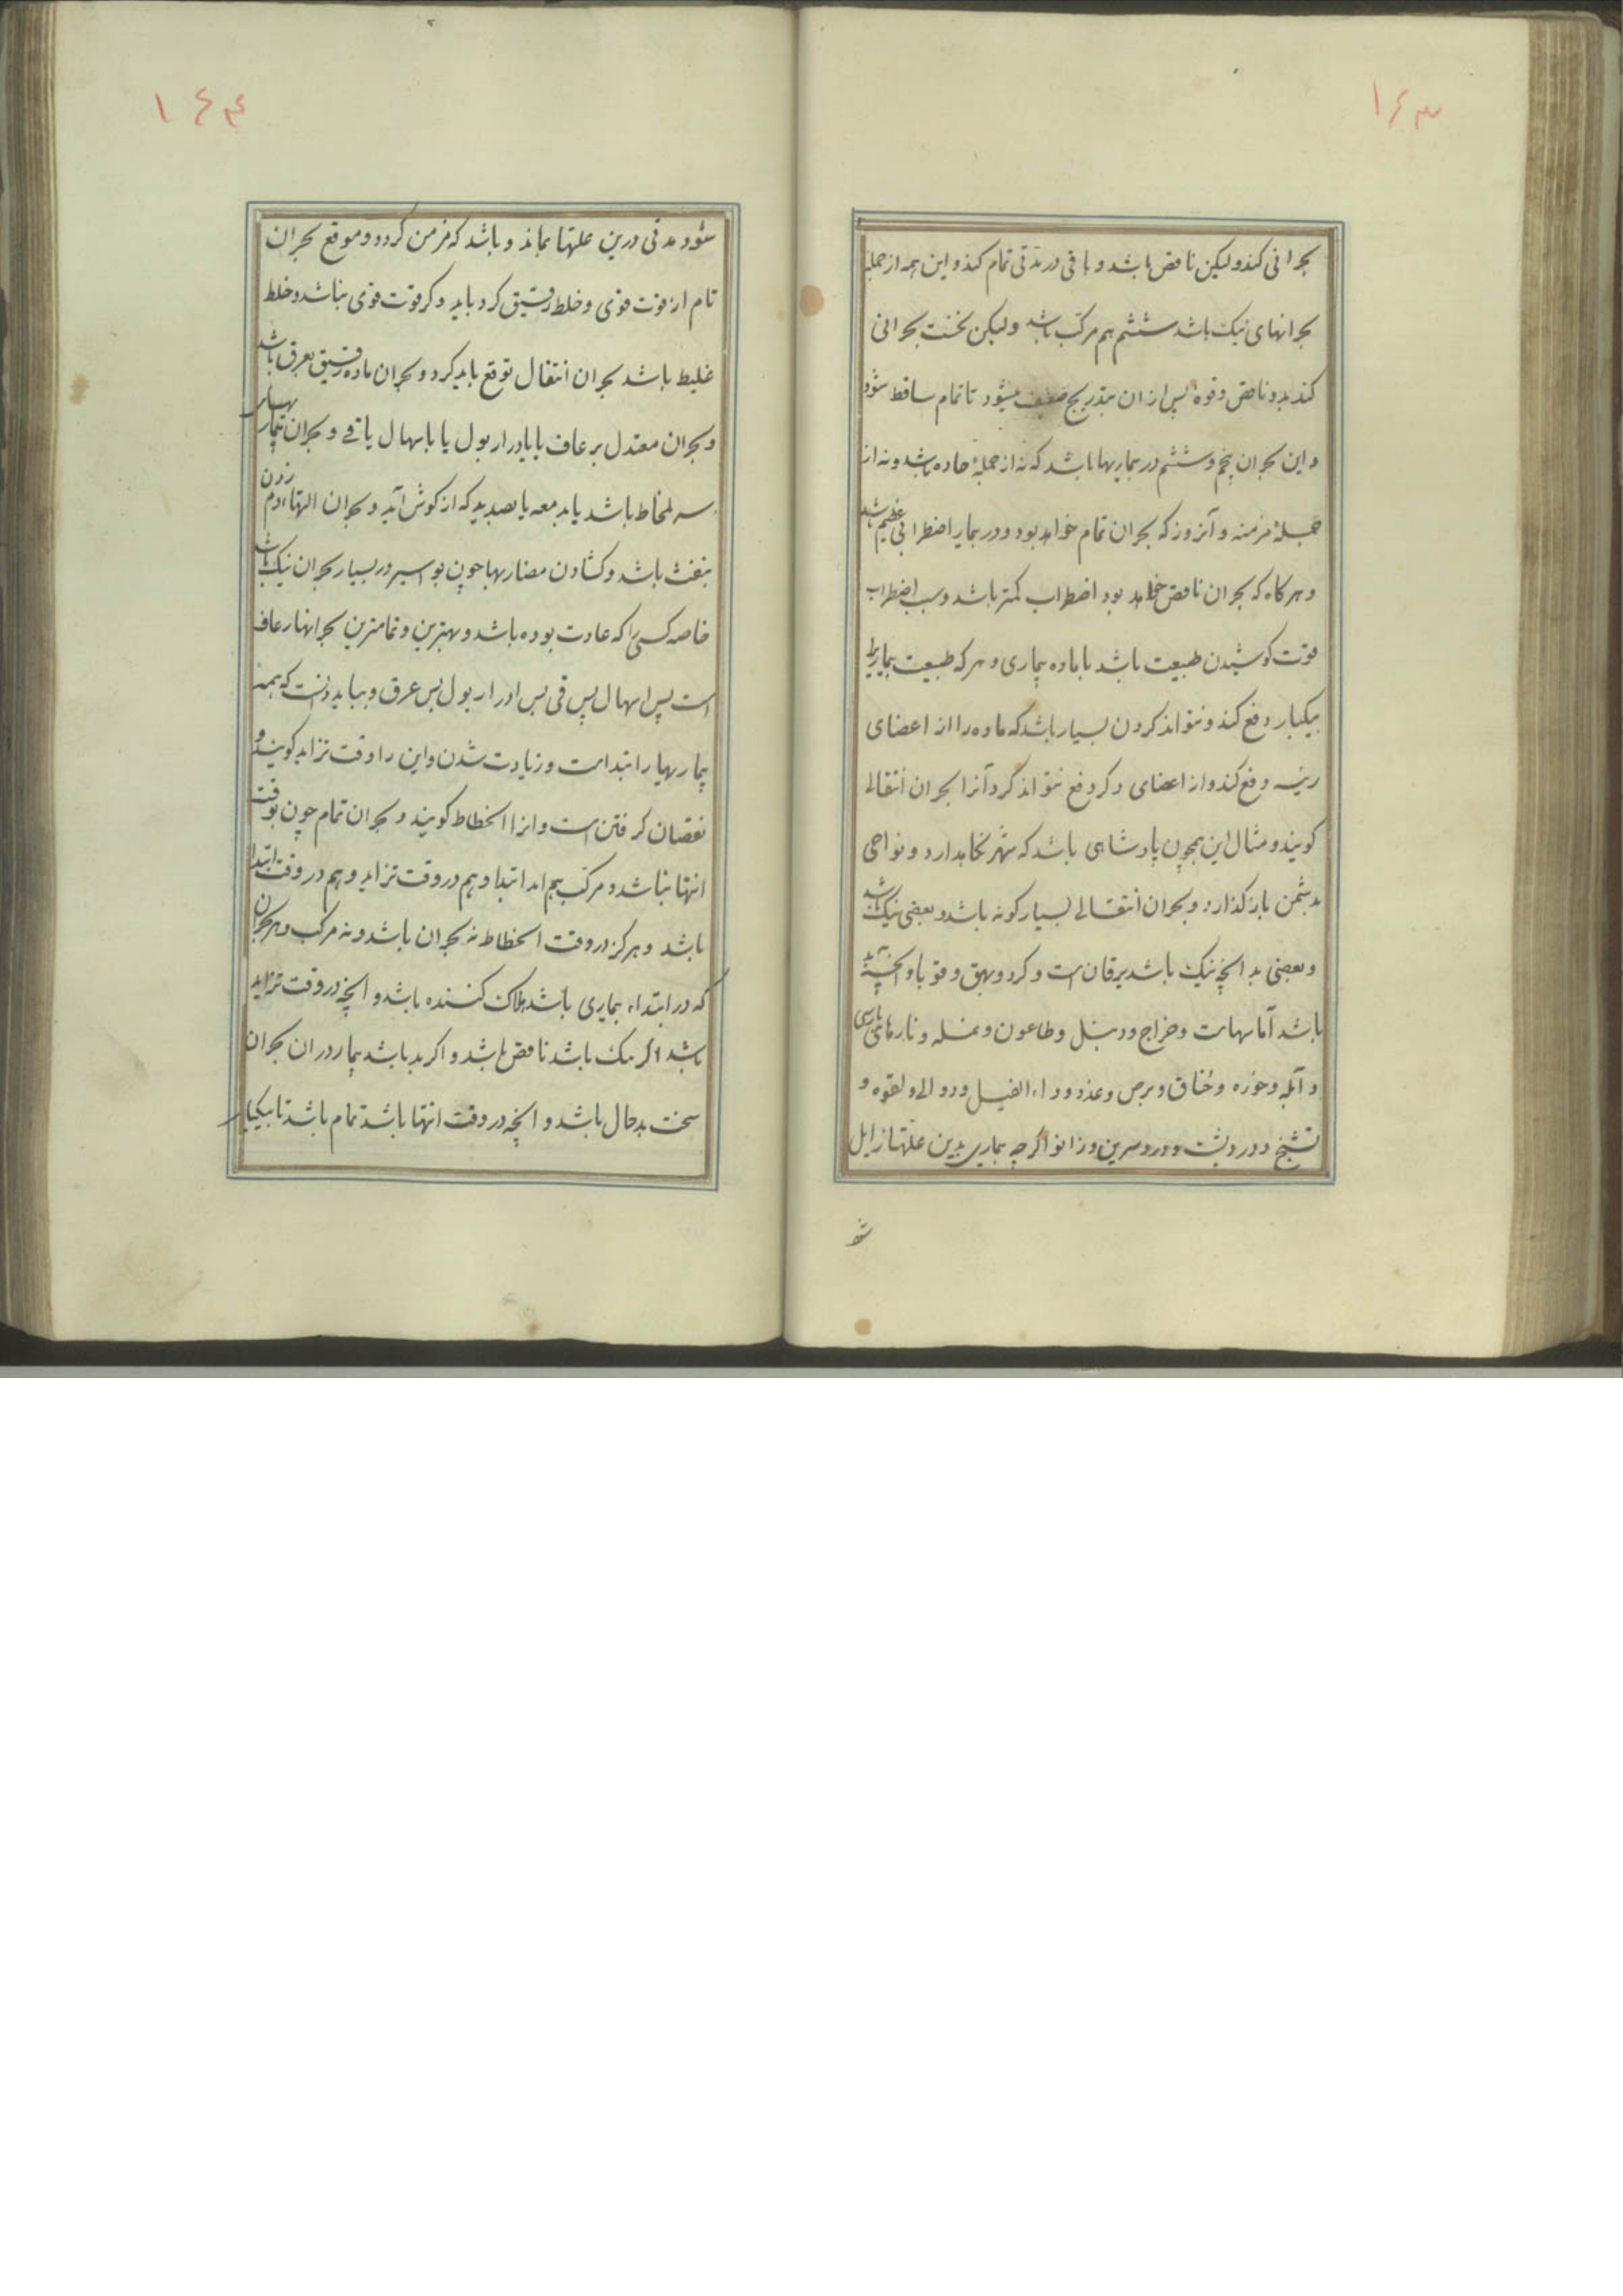 ۱۶۳
بحرانی کند ولیکن ناقص باشد و باقی در مدتی تمام کند و این همه از جمله
بحرانهای نیک باشد ششم هم مرکب باشد ولیکن نخست بحرانی
کند بد و ناقص و قوه پس از ان بتدریج ضعیف میشود تا تمام ساقط شود
و این بحران پنجم و ششم در بماریها باشد که نه از جملهٔ حاده باشد و نه از
جملهٔ مزمنه و آنروز که بحران تمام خواهد بود و در بمار اضطرابی عظیم باشد
و هر کاه که بحران ناقص خواهد بود اضطراب کمتر باشد و سبب اضطراب
قوت کوشیدن طبیعت باشد با ماده بیماری و هر که طبیعت بیماریرا
بیکبار دفع کند و نتواند کردن بسیار باشد که ماده را از اعضای
رئیسه دفع کند و از اعضای دکر دفع نتواند کرد آنرا بحران انتقالی
کویند و مثال این همچون پادشاهی باشد که شهر نکاهدارد و نواحی
بدشمن باز کذارد و بحران انتقالی بسیار کونه باشد و بعضی نیک باشد
و بعضی بد انچه نیک باشد یرقان است و کر و بهق و قوبا و انچه بد
باشد آماسهاست و خراج و دبیل و طاعون و نمله و نارهای پارسی
و آبله و خوره و خناق و برص و غدد و داء الفیل و دوالی و لقوه و
تشنج و درد پشت و درد سرین و زانو اکرچه بماری بدین علتها زایل
شو
۱۶۴
شود مدتی درین علتها بماند و باشد که مزمن کردد و موقع بحران
تام از قوت قوی و خلط رقیق کرد باید و کر قوت قوی نباشد و خلط
غلیظ باشد بحران انتقال توقع باید کرد و بحران ماده رقیق بعرق باشد
و بحران معتدل برعاف یا بادرار بول یا باسهال یا قی و بحران بیماریهای
سر بمخاط باشد یا بدمعه یا بصدید که از کوش آید و بحران التهاء دم زدن
بنفث باشد و کشادن مضاریها چون بواسیر در بسیار بحران نیک باشد
خاصه کسی را که عادت بوده باشد و بهترین و تمامترین بحرانها رعاف
است پس اسهال پس قی پس ادرار بول پس عرق و بباید دانست که همه
بیماریها را ابتداست و زیادت شدن و این را وقت تزاید کویند و
نقصان کرفتن است و انرا انحطاط کویند و بحران تمام چون بوقت
انتها نباشد و مرکب هم اند ابتدا و هم در وقت تزاید و هم در وقت ابتدا
باشد و هرکز در وقت انحطاط نه بحران باشد و نه مرکب و هر بحران
که در ابتداء بماری باشد هلاک کننده باشد و انچه در وقت تزاید
باشد اکر نیک باشد ناقص باشد و اکر بد باشد بیمار در ان بحران
سخت بدحال باشد و انچه در وقت انتها باشد تمام باشد تا بیکبار